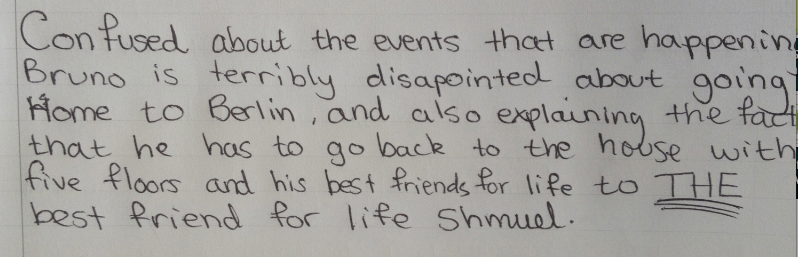 Confused about the events that are happenin
Bruno is terribly disapointed about going
Home to Berlin, and also explaining the fact
that he has to go back to the house with
five floors and his best friends for life to THE
best friend for life Shmuel.